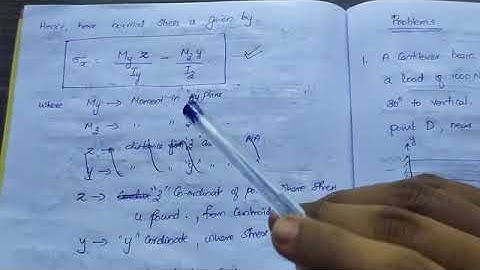 Hence, here normal stress is given by
σx = My z / Iy − Mz y / Iz
where My → Moment in "xy" plane
Mz → " "
z → distance
y →
z → "z" Co-ordinate of where stress
is found., from Centroid
y → "y" Cordinate, where stress
Problems
1. A Cantilever beam
a load of 1000 N
30° to vertical.
point D, near
y